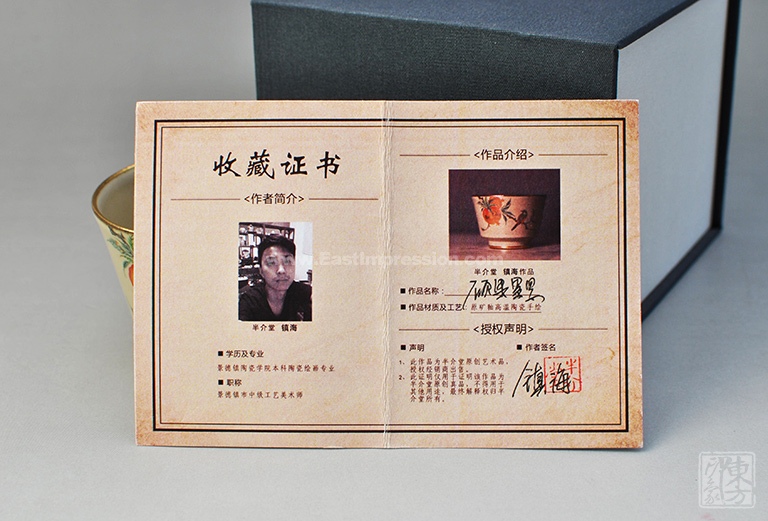 收藏证书
<作者简介>
半介堂 镇海
■ 学历及专业
景德镇陶瓷学院本科陶瓷绘画专业
■ 职称
景德镇市中级工艺美术师
<作品介绍>
半介堂 镇海作品
■ 作品名称：
■ 作品材质及工艺：原矿釉高温陶瓷手绘
<授权声明>
■ 声明
1、此作品为半介堂原创艺术品，
授权经销商出售。
2、此证明仅用于证明该作品为
半介堂原创真品，不得用于
其他用途，最终解释权归半
介堂所有。
■ 作者签名
镇海
www.EastImpression.com